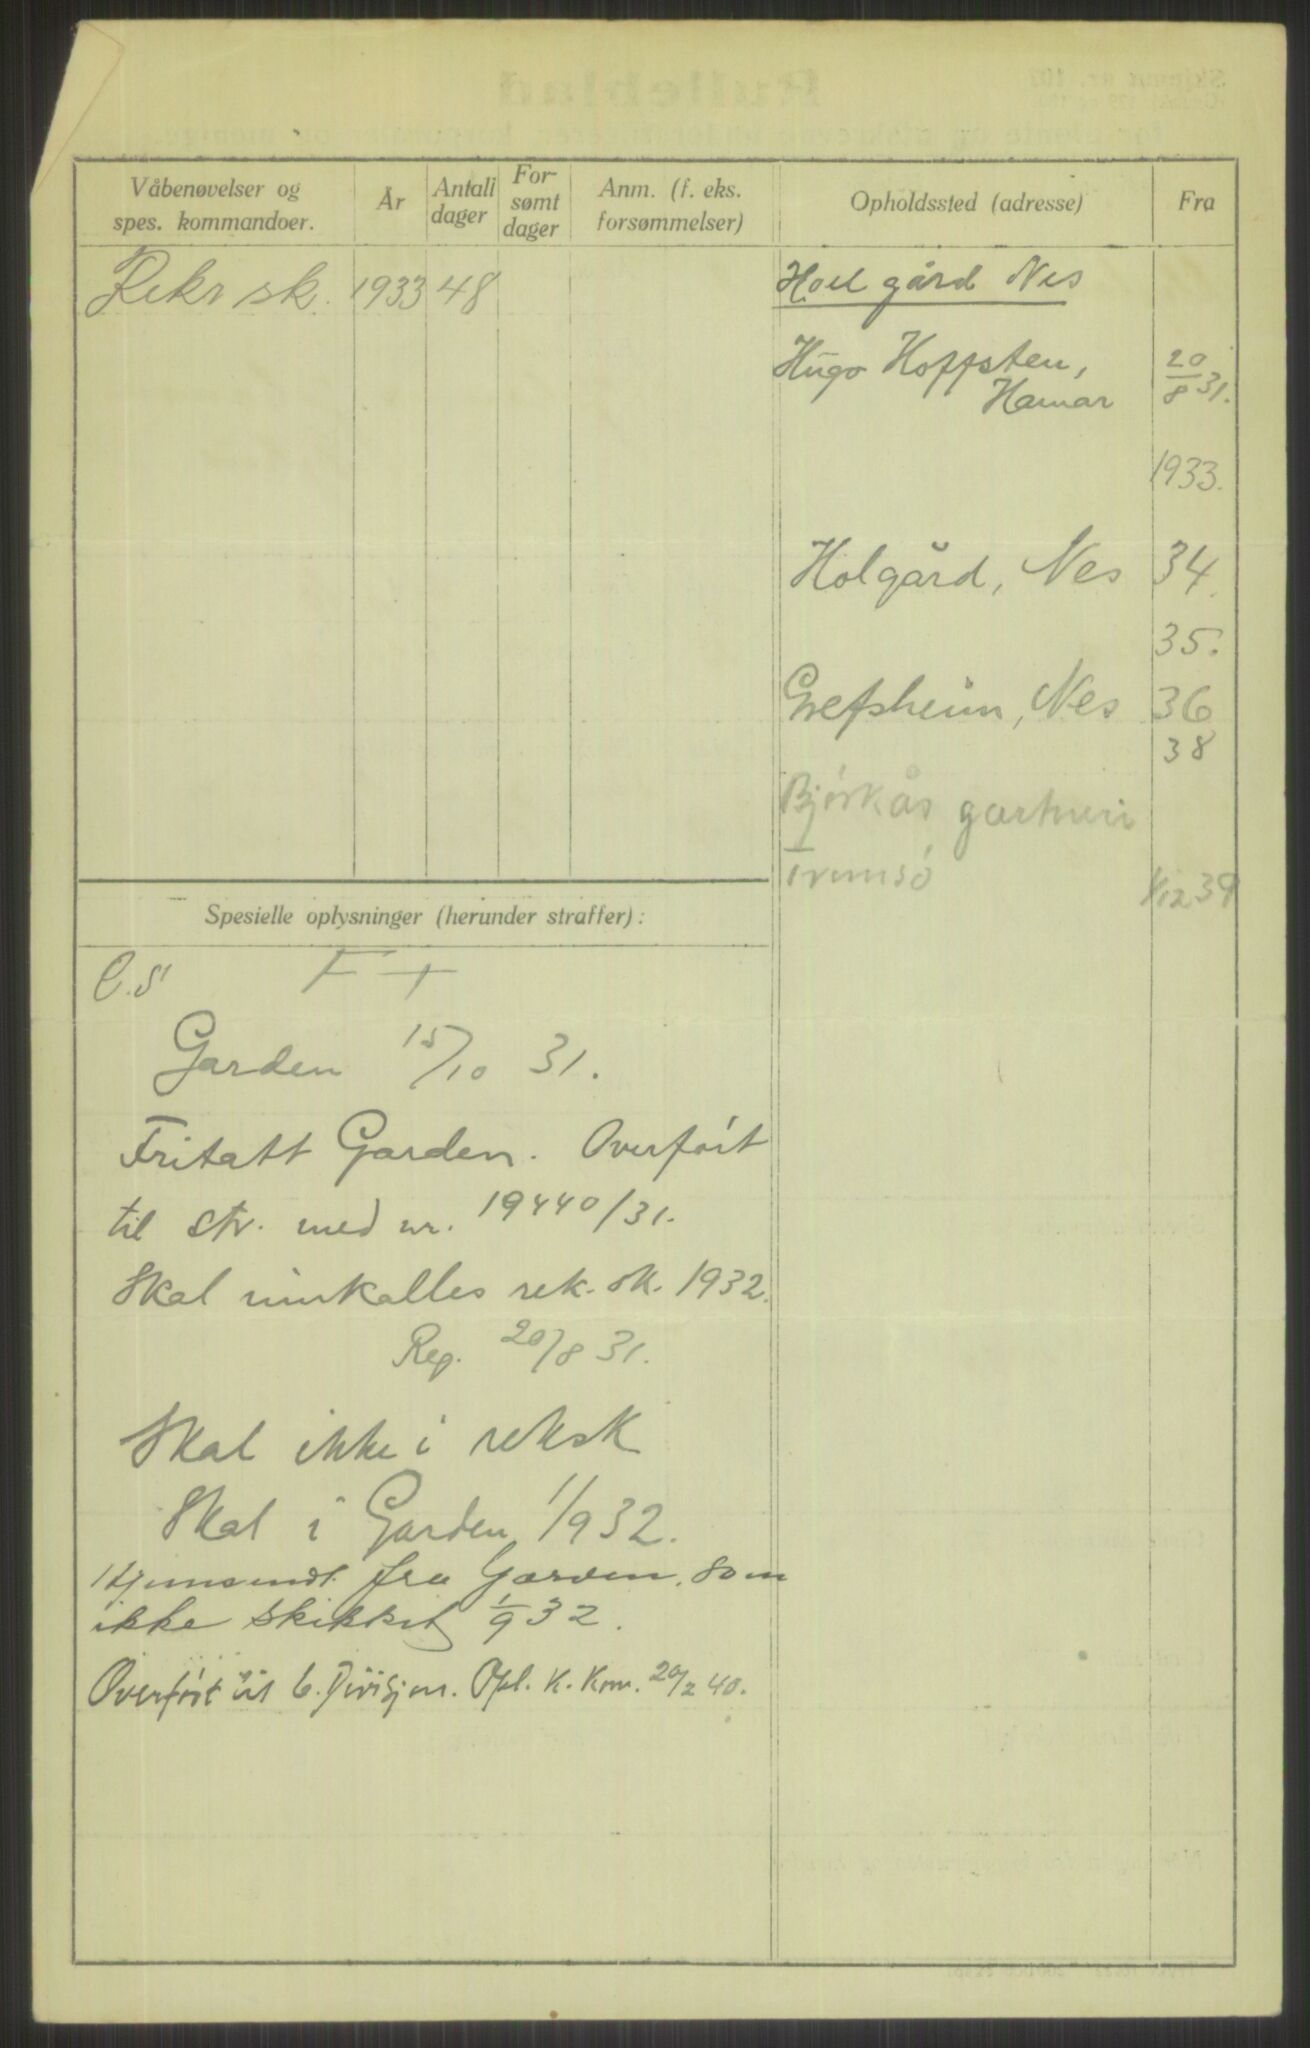 Våbenøvelser og
spes. kommandoer.
År
Antall
dager
For-
sømt
dager
Anm. (f. eks.
forsømmelser)
Opholdssted (adresse)
Fra
Rekr sk. 1933 48
Hoel gård Nes
Hugo Hoffsten,
Hamar
20/8 31.
1933.
Holgård, Nes 34.
35.
Grefsheim, Nes 36
38
Bjørkås gartneri
Tromsö 1/12 39
Spesielle oplysninger (herunder straffer):
C.S F +
Garden 15/10 31.
Fritatt Garden. Overført
til str. med nr. 19440/31.
Skal innkalles rek. sk. 1932.
Reg. 20/8 31.
Skal ikke i reksk
Skal i Garden 1/9 32.
Hjemsendt fra Garden som
ikke skikket 1/9 32.
Overført til 6. Divisjon. Opl. K. Kom. 20/2 40.